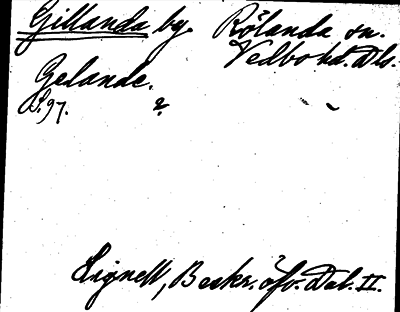 Gillanda by. Rölanda sn.
Vedbo hd. Dls.
Gelande.
S. 97. 2.
Lignell, Beskr. öfv. Dal. II.